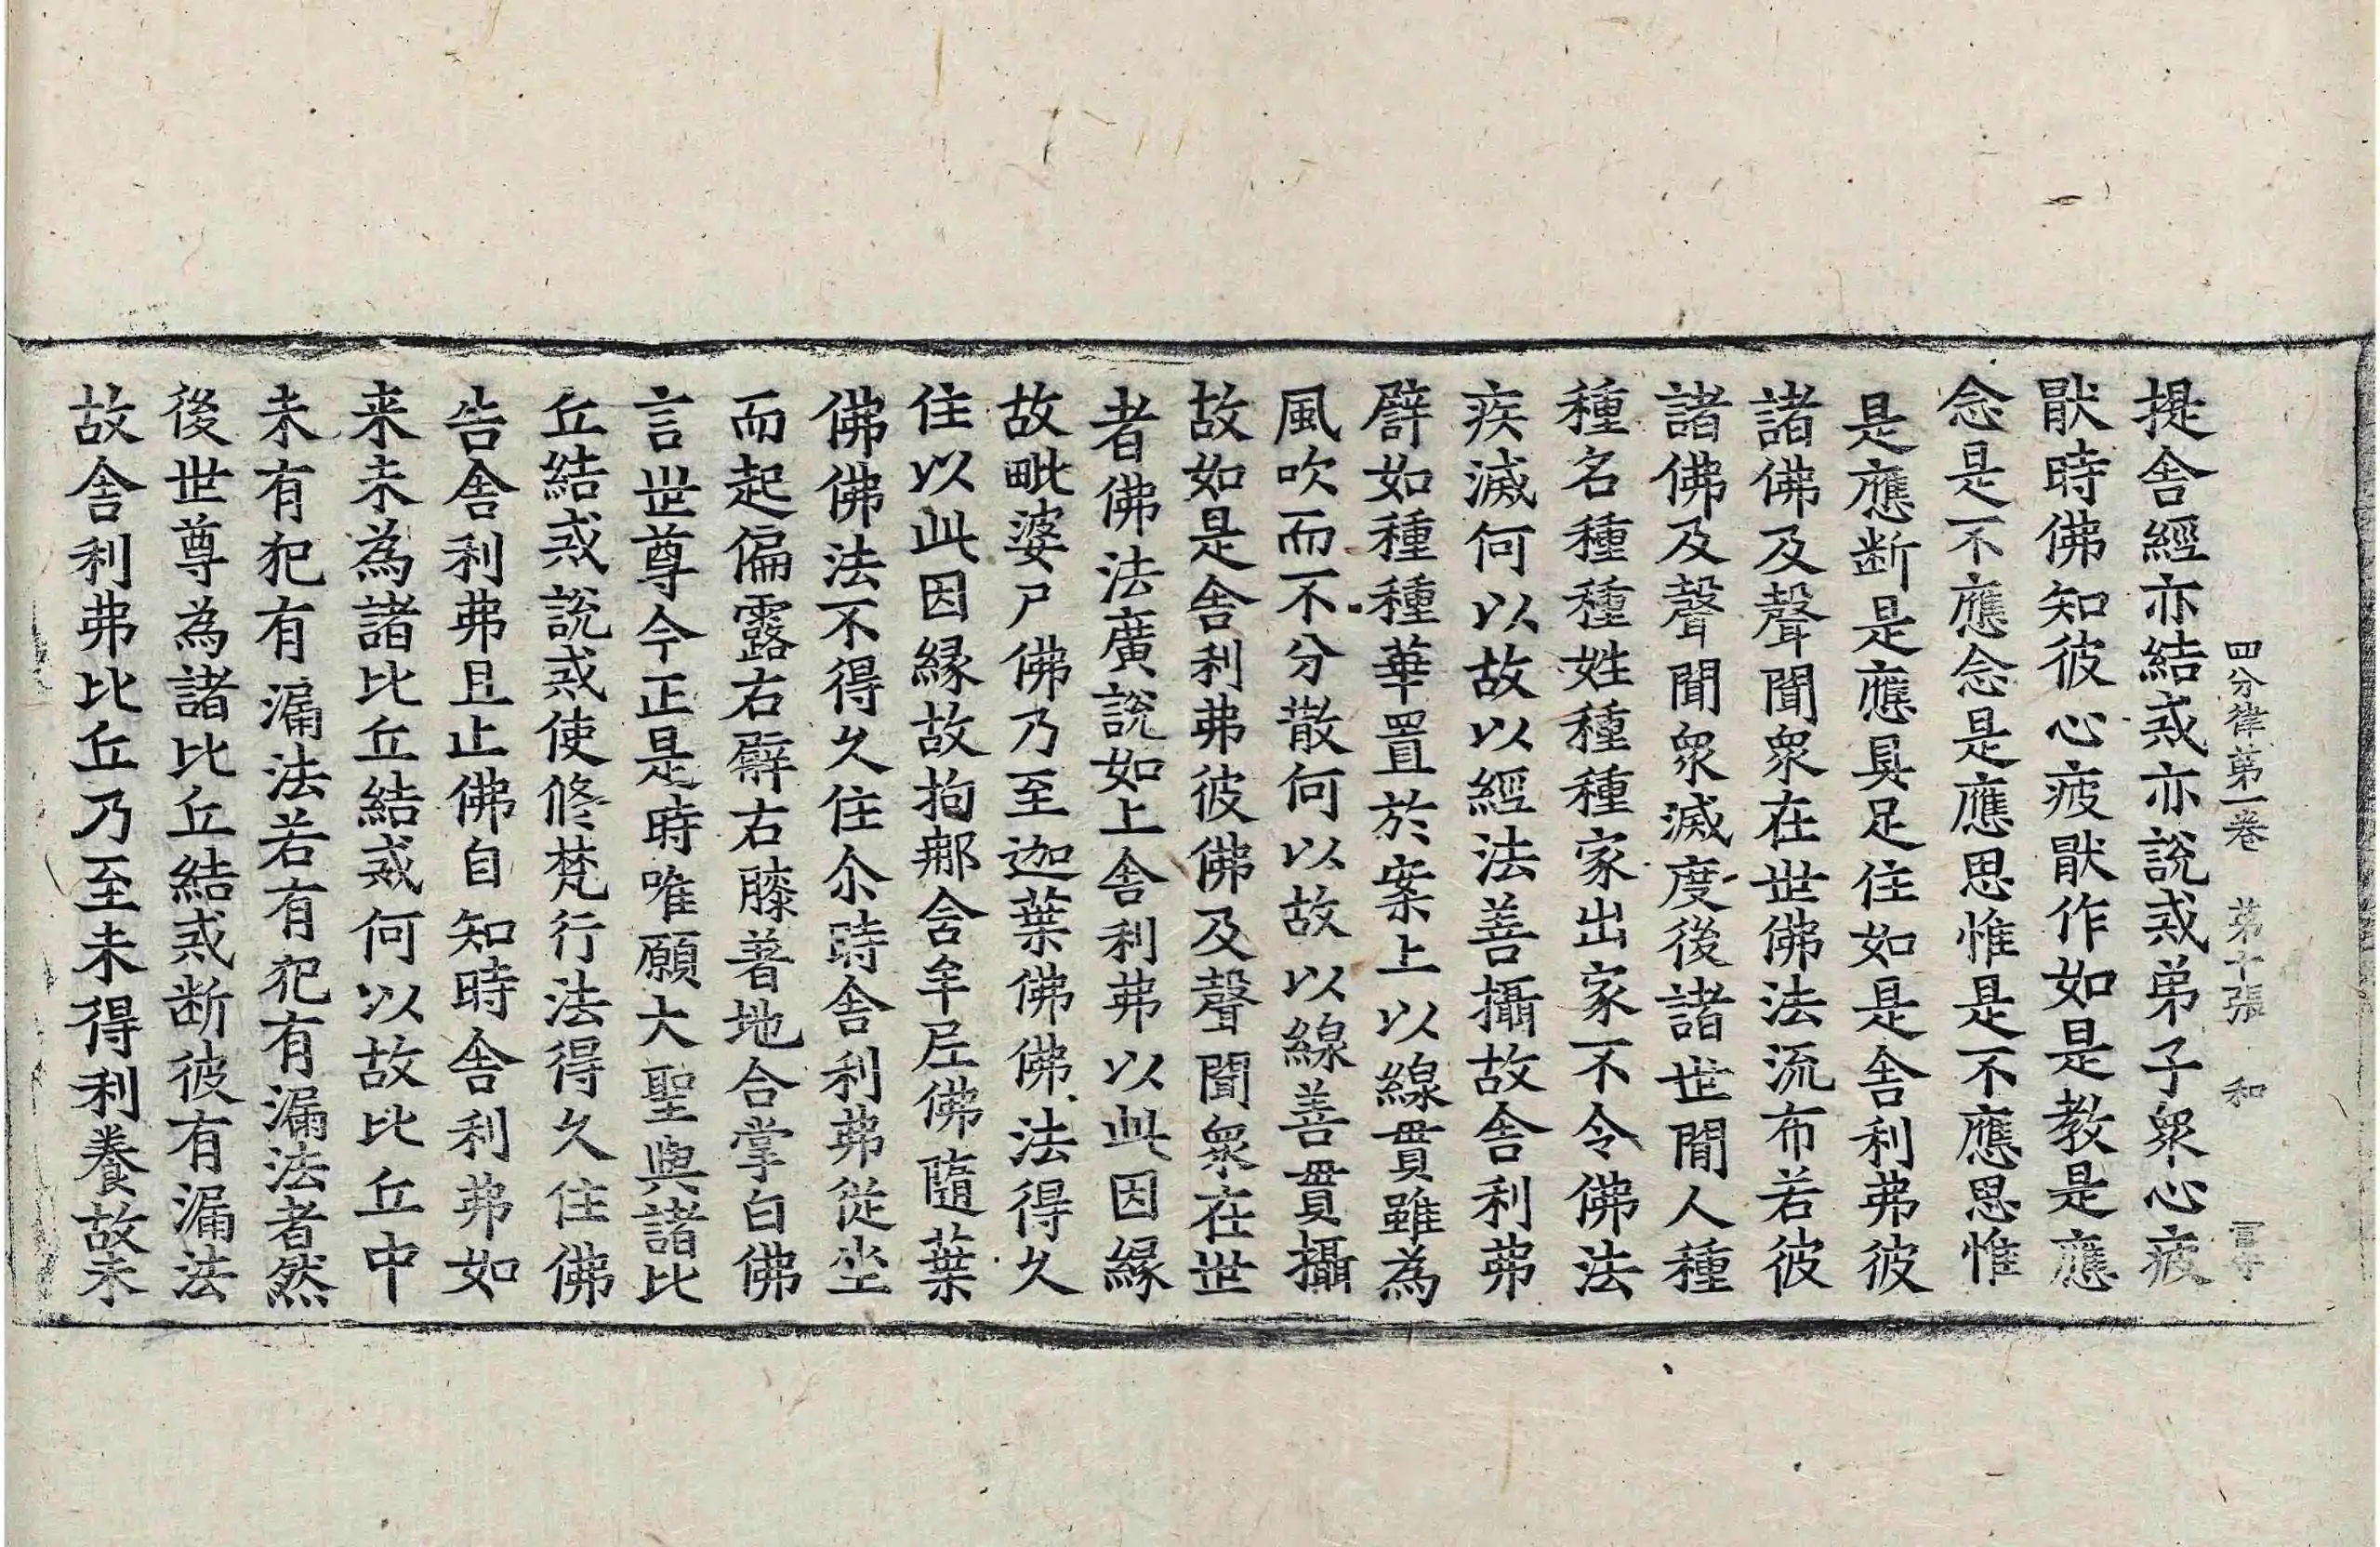 四分律第一卷　第十張　和
提舍經亦結戒亦說戒弟子衆心疲
猒時佛知彼心疲猒作如是教是應
念是不應念是應思惟是不應思惟
是應断是應具足住如是舍利弗彼
諸佛及聲聞衆在世佛法流布若彼
諸佛及聲聞衆滅度後諸世閒人種
種名種種姓種種家出家不令佛法
疾滅何以故以經法善攝故舍利弗
譬如種種華置於案上以線貫雖為
風吹而不分散何以故以線善貫攝
故如是舍利弗彼佛及聲聞衆在世
者佛法廣說如上舍利弗以此因緣
故毗婆尸佛乃至迦葉佛佛法得久
住以此因緣故拘那含牟尼佛隨葉
佛佛法不得久住尒時舍利弗從坐
而起偏露右臂右膝著地合掌白佛
言世尊今正是時唯願大聖與諸比
丘結戒說戒使修梵行法得久住佛
告舍利弗且止佛自知時舍利弗如
来未為諸比丘結戒何以故比丘中
未有犯有漏法若有犯有漏法者然
後世尊為諸比丘結戒断彼有漏法
故舍利弗比丘乃至未得利養故未